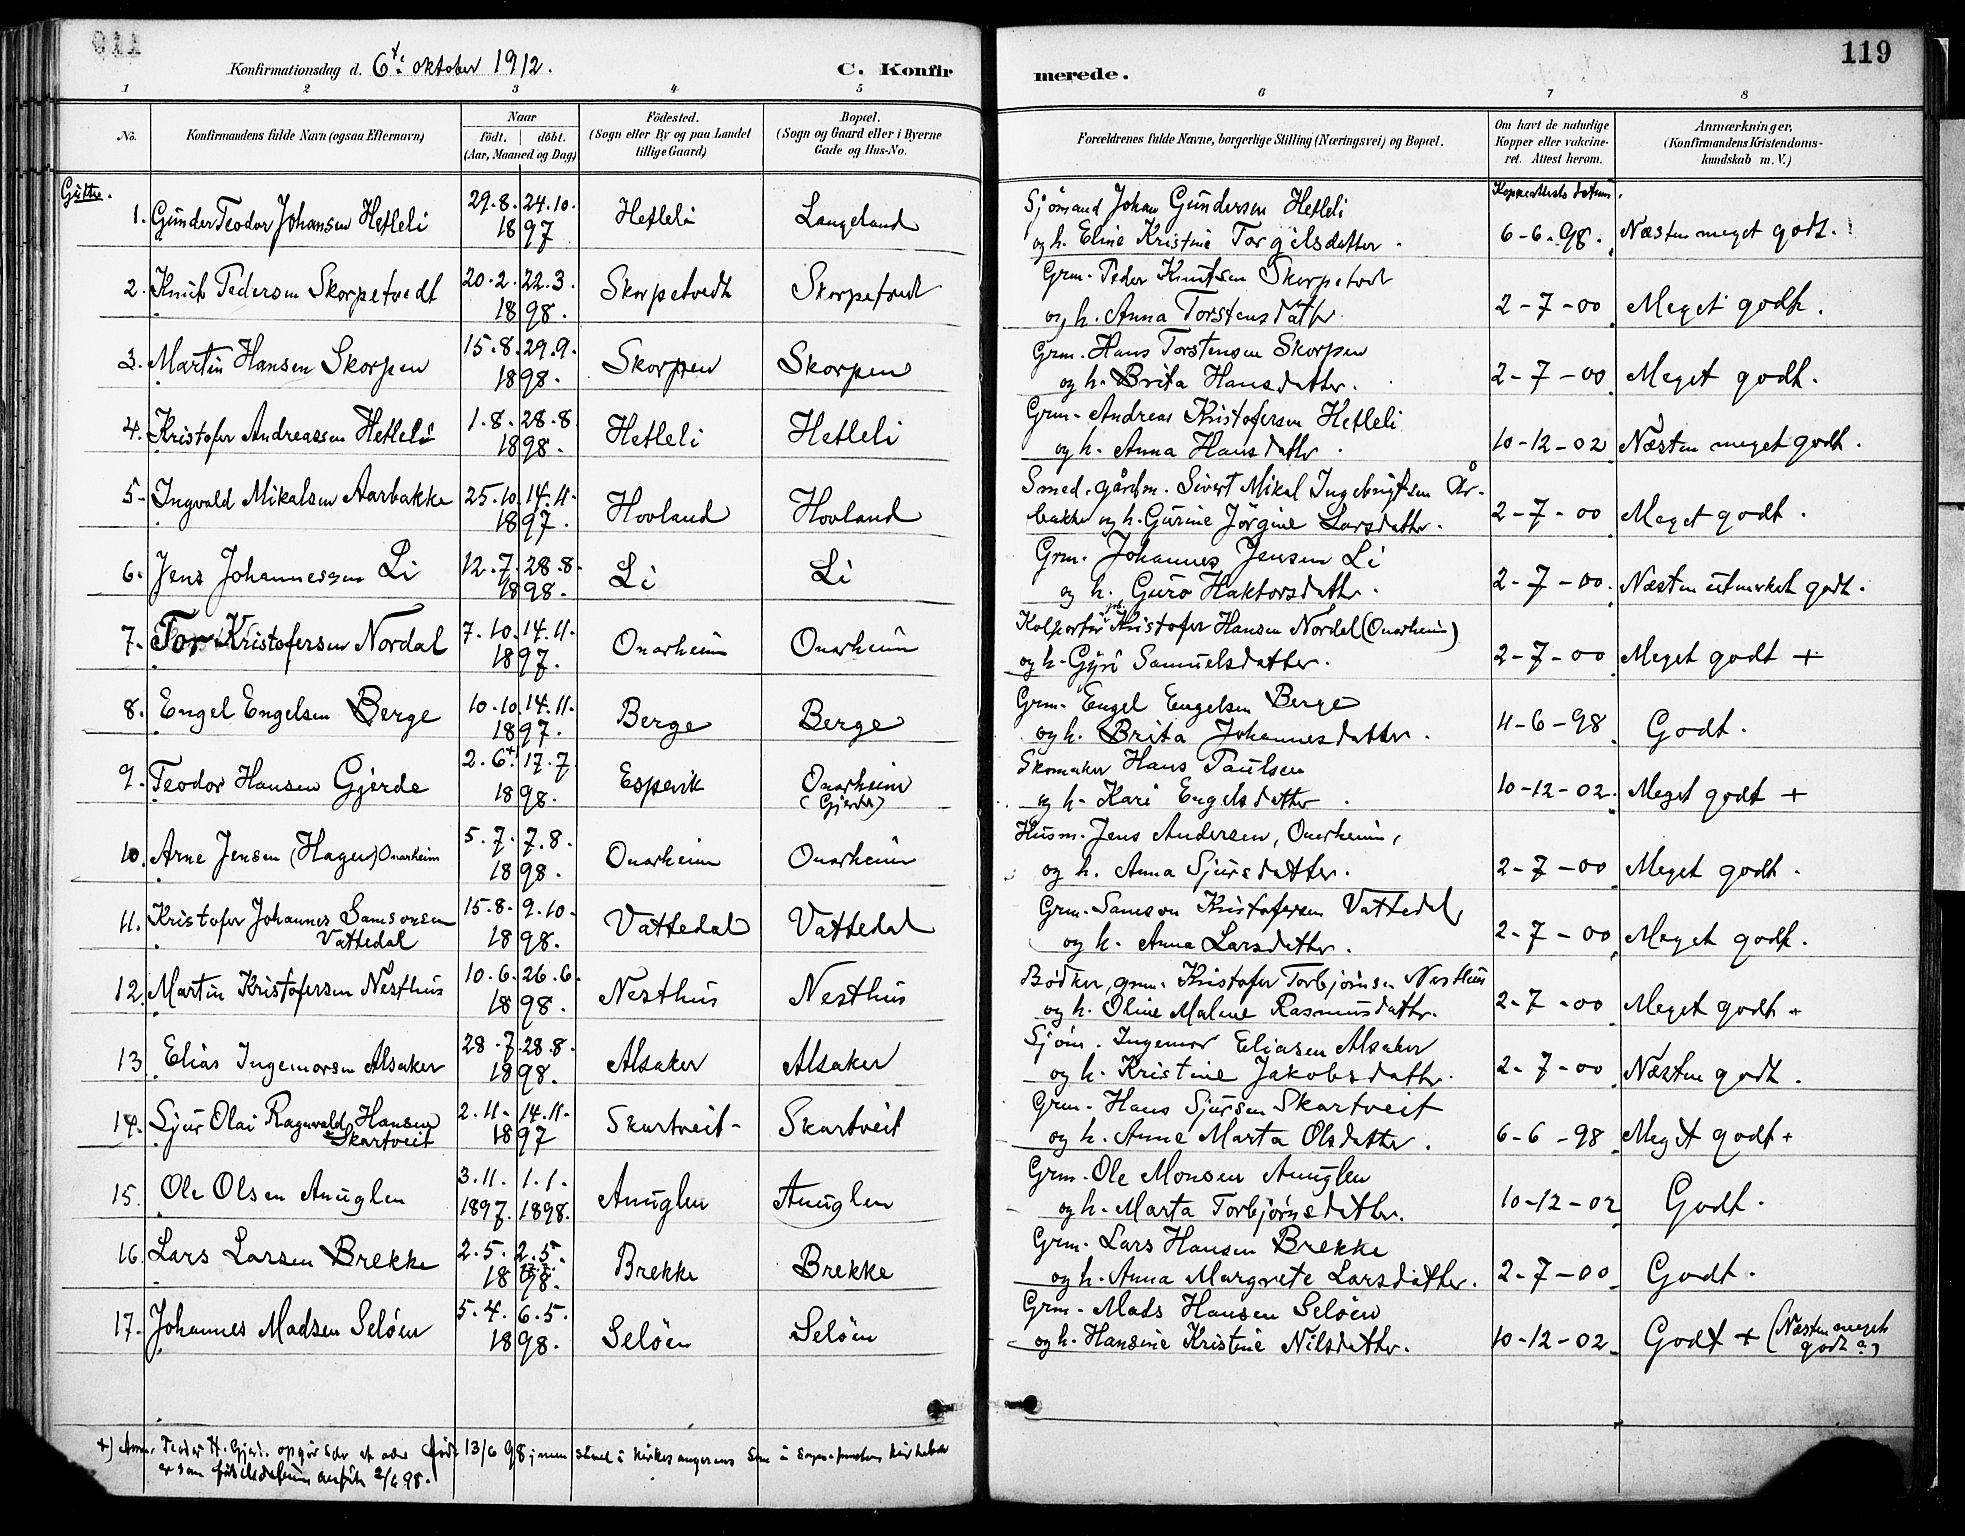 119
Konfirmationsdag d. 6te oktober 1912. C. Konfirmerede.
1 2 3 4 5 6 7 8
No. Konfirmandens fulde Navn (ogsaa Efternavn) Naar født. døbt. (Aar, Maaned og Dag) Fødested. (Sogn eller By og paa Landet tillige Gaard) Bopæl. (Sogn og Gaard eller i Byerne Gade og Hus-No. Forældrenes fulde Navne, borgerlige Stilling (Næringsvei) og Bopæl. Om havt de naturlige Kopper eller vakcineret. Attest herom. Anmærkninger, (Konfirmandens Kristendomskundskab m. V.)
Gutter. Koppeattests datum.
1. Gunder Teodor Johansen Hetleli 29.8. 24.10. 1897 Hetleli Langeland Sjömand Johan Gundersen Hetleli
og h. Eline Kristine Torgilsdatter. 6-6-98. Næsten meget godt.
2. Knut Pedersen Skorpetvedt 20.2. 22.3. 1898. Skorpetvedt Skorpetvedt Grm. Peder Knutsen Skorpetvedt
og h. Anna Torstensdatter 2-7-00 Meget godt.
3. Martin Hansen Skorpen 15.8. 29.9. 1898. Skorpen Skorpen Grm. Hans Torstensen Skorpen
og h. Brita Hansdatter. 2-7-00 Meget godt.
4. Kristofer Andreassen Hetleli 1.8. 28.8 1898. Hetleli Hetleli Grm. Andreas Kristofersen Hetleli
og h. Anna Hansdatter 10-12-02 Næsten meget godt.
5. Ingvald Mikalsen Aarbakke 25.10. 14.11. 1897. Hovland Hovland Smed, gårdm. Sivert Mikal Ingebrigtsen År-
bakke og h. Gurine Jörgine Larsdatter. 2-7-00 Meget godt.
6. Jens Johannessen Li 12.7. 28.8. 1898. Li Li Grm. Johannes Jensen Li
og h. Guro Haktorsdatter. 2-7-00. Næsten utmerket godt.
7. Tor Kristofersen Nordal 7.10. 14.11. 1897. Onarheim Onarheim Kolportør Kristofer Hansen Nordal (Onarheim)
og h. Gyri Samuelsdatter. 2-7-00 Meget godt +
8. Engel Engelsen Berge 10.10. 14.11. 1897. Berge Berge Grm. Engel Engelsen Berge
og h. Brita Johannesdatter. 11-6-98 Godt.
9. Teodor Hansen Gjerde 2.6.+ 17.7. 1898. Espevik Onarheim (Gjerde) Skomaker Hans Paulsen
og h. Kari Engelsdatter. 10-12-02. Meget godt +
10. Arne Jensen (Hagen) Onarheim 5.7. 7.8. 1898. Onarheim Onarheim Husm. Jens Andersen, Onarheim,
og h. Anna Sjursdatter. 2-7-00 Meget godt.
11. Kristofer Johannes Samsonsen Vattedal 15.8. 9.10. 1898. Vattedal Vattedal Grm. Samson Kristofersen Vattedal,
og h. Anna Larsdatter. 2-7-00 Meget godt.
12. Martin Kristofersen Nesthus 10.6. 26.6. 1898. Nesthus Nesthus Bödker, grm. Kristofer Torbjørnsen Nesthus
og h. Oline Malene Rasmusdatter. 2-7-00 Meget godt +
13 Elias Ingemorsen Alsaker 28.7. 28.8. 1898. Alsaker Alsaker Sjöm. Ingemor Eliasen Alsaker
og h. Kristine Jakobsdatter. 2-7-00 Næsten godt.
14. Sjur Olai Ragnvald Hansen Skartveit 2.11. 14.11. 1897 Skartveit Skartveit Grm. Hans Sjursen Skartveit
og h. Anne Marta Olsdatter. 6-6-98 Meget godt +
15. Ole Olsen Anuglen 3.11. 1897. 1.1. 1898. Anuglen Anuglen Grm. Ole Monsen Anuglen
og h. Marta Torbjørnsdatter. 10-12-02 Godt.
16. Lars Larsen Brekke 2.5. 2.5. 1898. Brekke Brekke Grm. Lars Hansen Brekke
og h. Anna Margrete Larsdatter. 2-7-00 Godt.
17. Johannes Madsen Selöen 5.4. 6.5. 1898. Selöen Selöen Grm. Mads Hansen Selöen
og h. Hansine Kristine Nilsdatter. 10-12-02 Godt + (Næsten meget godt?)
+) Teodor H. Gjerde opgir født 13/6 98; men i som i
er som anført 2/6 98.